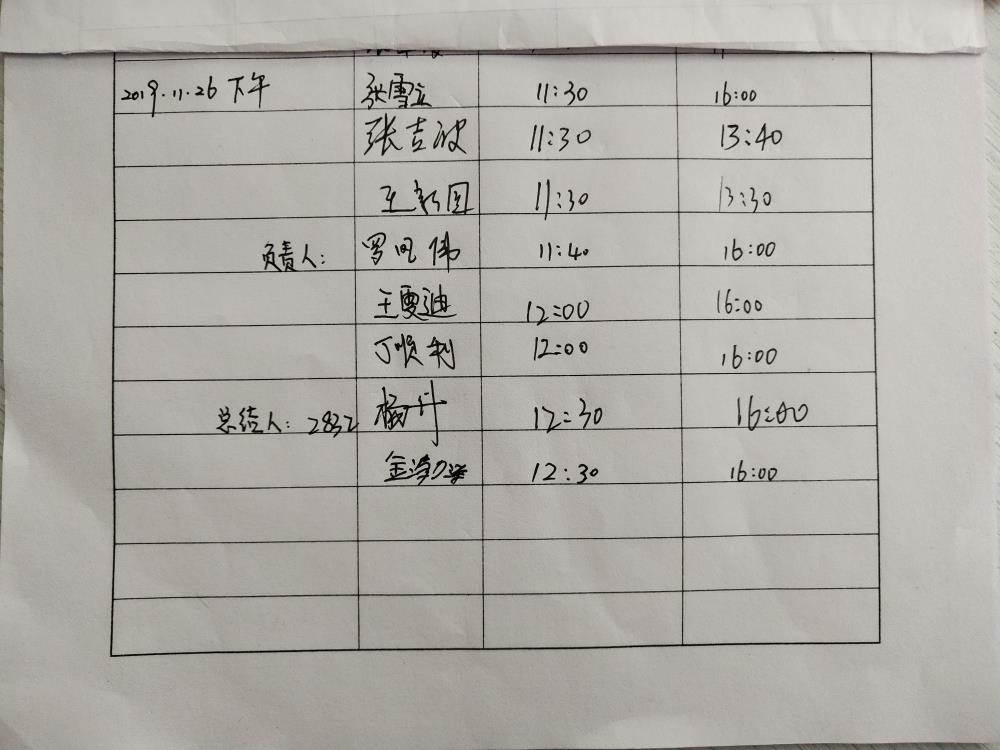 2019.11.26 下午 张雪立 11:30 16:00
张吉波 11:30 13:40
王新国 11:30 13:30
负责人: 罗 伟 11:40 16:00
王雯迪 12:00 16:00
丁顺利 12:00 16:00
总结人: 2832 杨丹 12:30 16:00
金 12:30 16:00